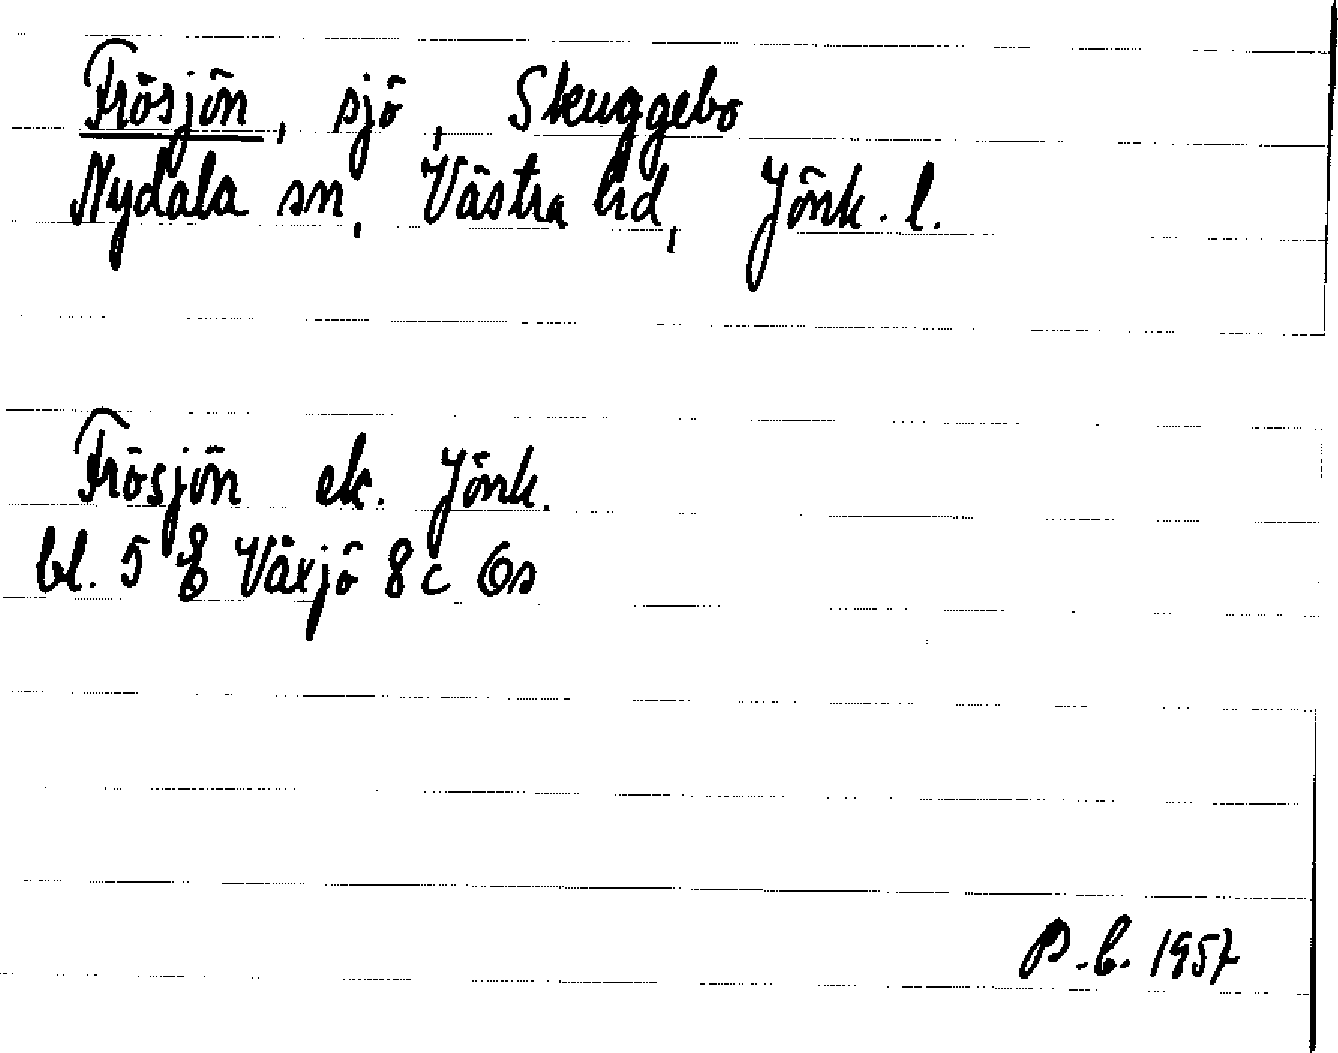 Frösjön, sjö, Skuggebo
Nydala sn, Västra hd, Jönk. l.
Frösjön ek. Jönk.
bl. 5 E Växjö 8 c Ös
P.b. 1957